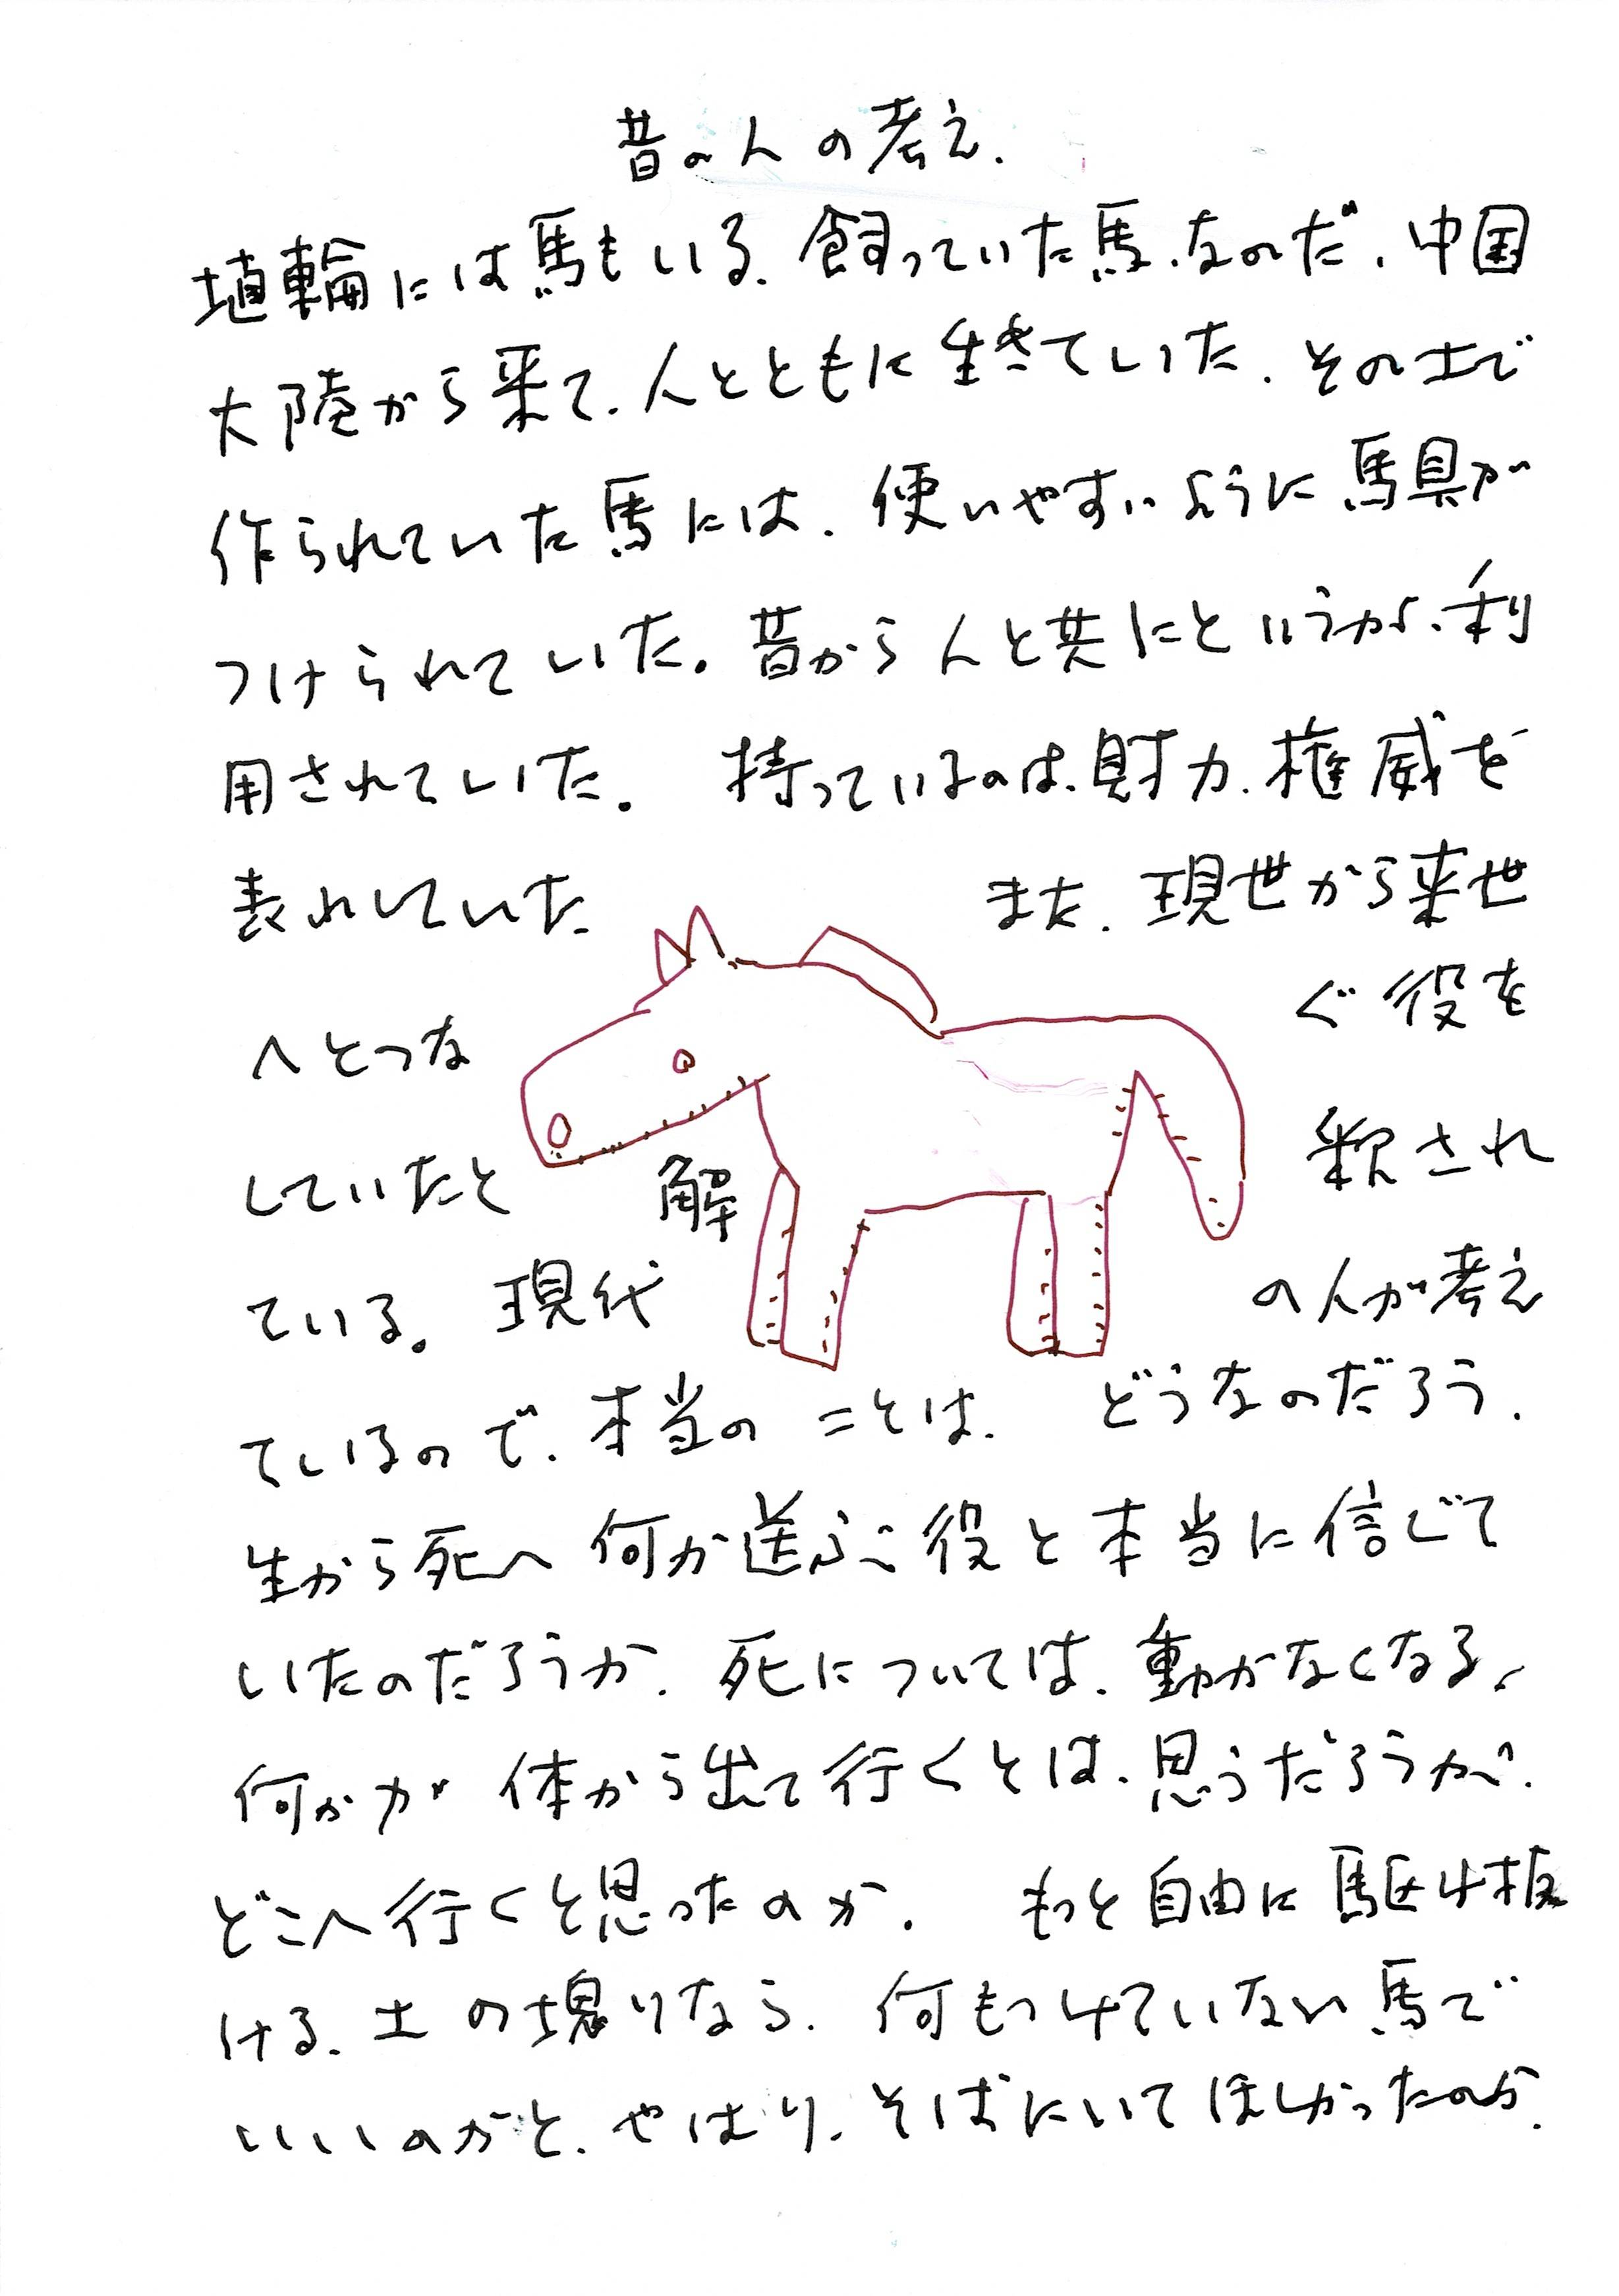 昔の人の考え.
埴輪には馬もいる. 飼っていた馬、なのだ、中国
大陸から来て、人とともに生きていた. その土で
作られていた馬には、使いやすいように馬具が
つけられていた。昔から人と共にというが、利
用されていた。 持っているのは、財力、権威を
表れしていた また、現世から来世
へとつな ぐ役を
していたと 解 釈され
ている。現代 の人が考え
ているので、本当の ことは、 どうなのだろう.
生から死へ何か送ぶ役と本当に信じて
いたのだろうか. 死については、動かなくなる、
何かが 体から出て行くとは、思うだろうが、
どこへ行くと思ったのか. もっと自由に駆け抜
ける、土の塊りなら、何もつけていない馬で
いいのがと、やはり、そばにいてほしかったのか.